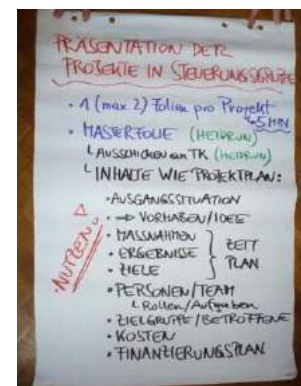 PRÄSENTATION DER
PROJEKTE IN STEUERUNGSGRUPPE
• 1 (max. 2) Folien pro Projekt
↳ 5 MIN
• MASTERFOLIE (HEIDRUN)
└ AUSSCHICKEN an TK (HEIDRUN)
└ INHALTE WIE PROJEKTPLAN:
• AUSGANGSSITUATION
• → VORHABEN/IDEE
• MASSNAHMEN
• ERGEBNISSE
• ZIELE
} ZEIT
PLAN
• NUTZEN
• PERSONEN/TEAM
└ Rollen/Aufgaben
• ZIELGRUPPE/BETROFFENE
• KOSTEN
• FINANZIERUNGSPLAN